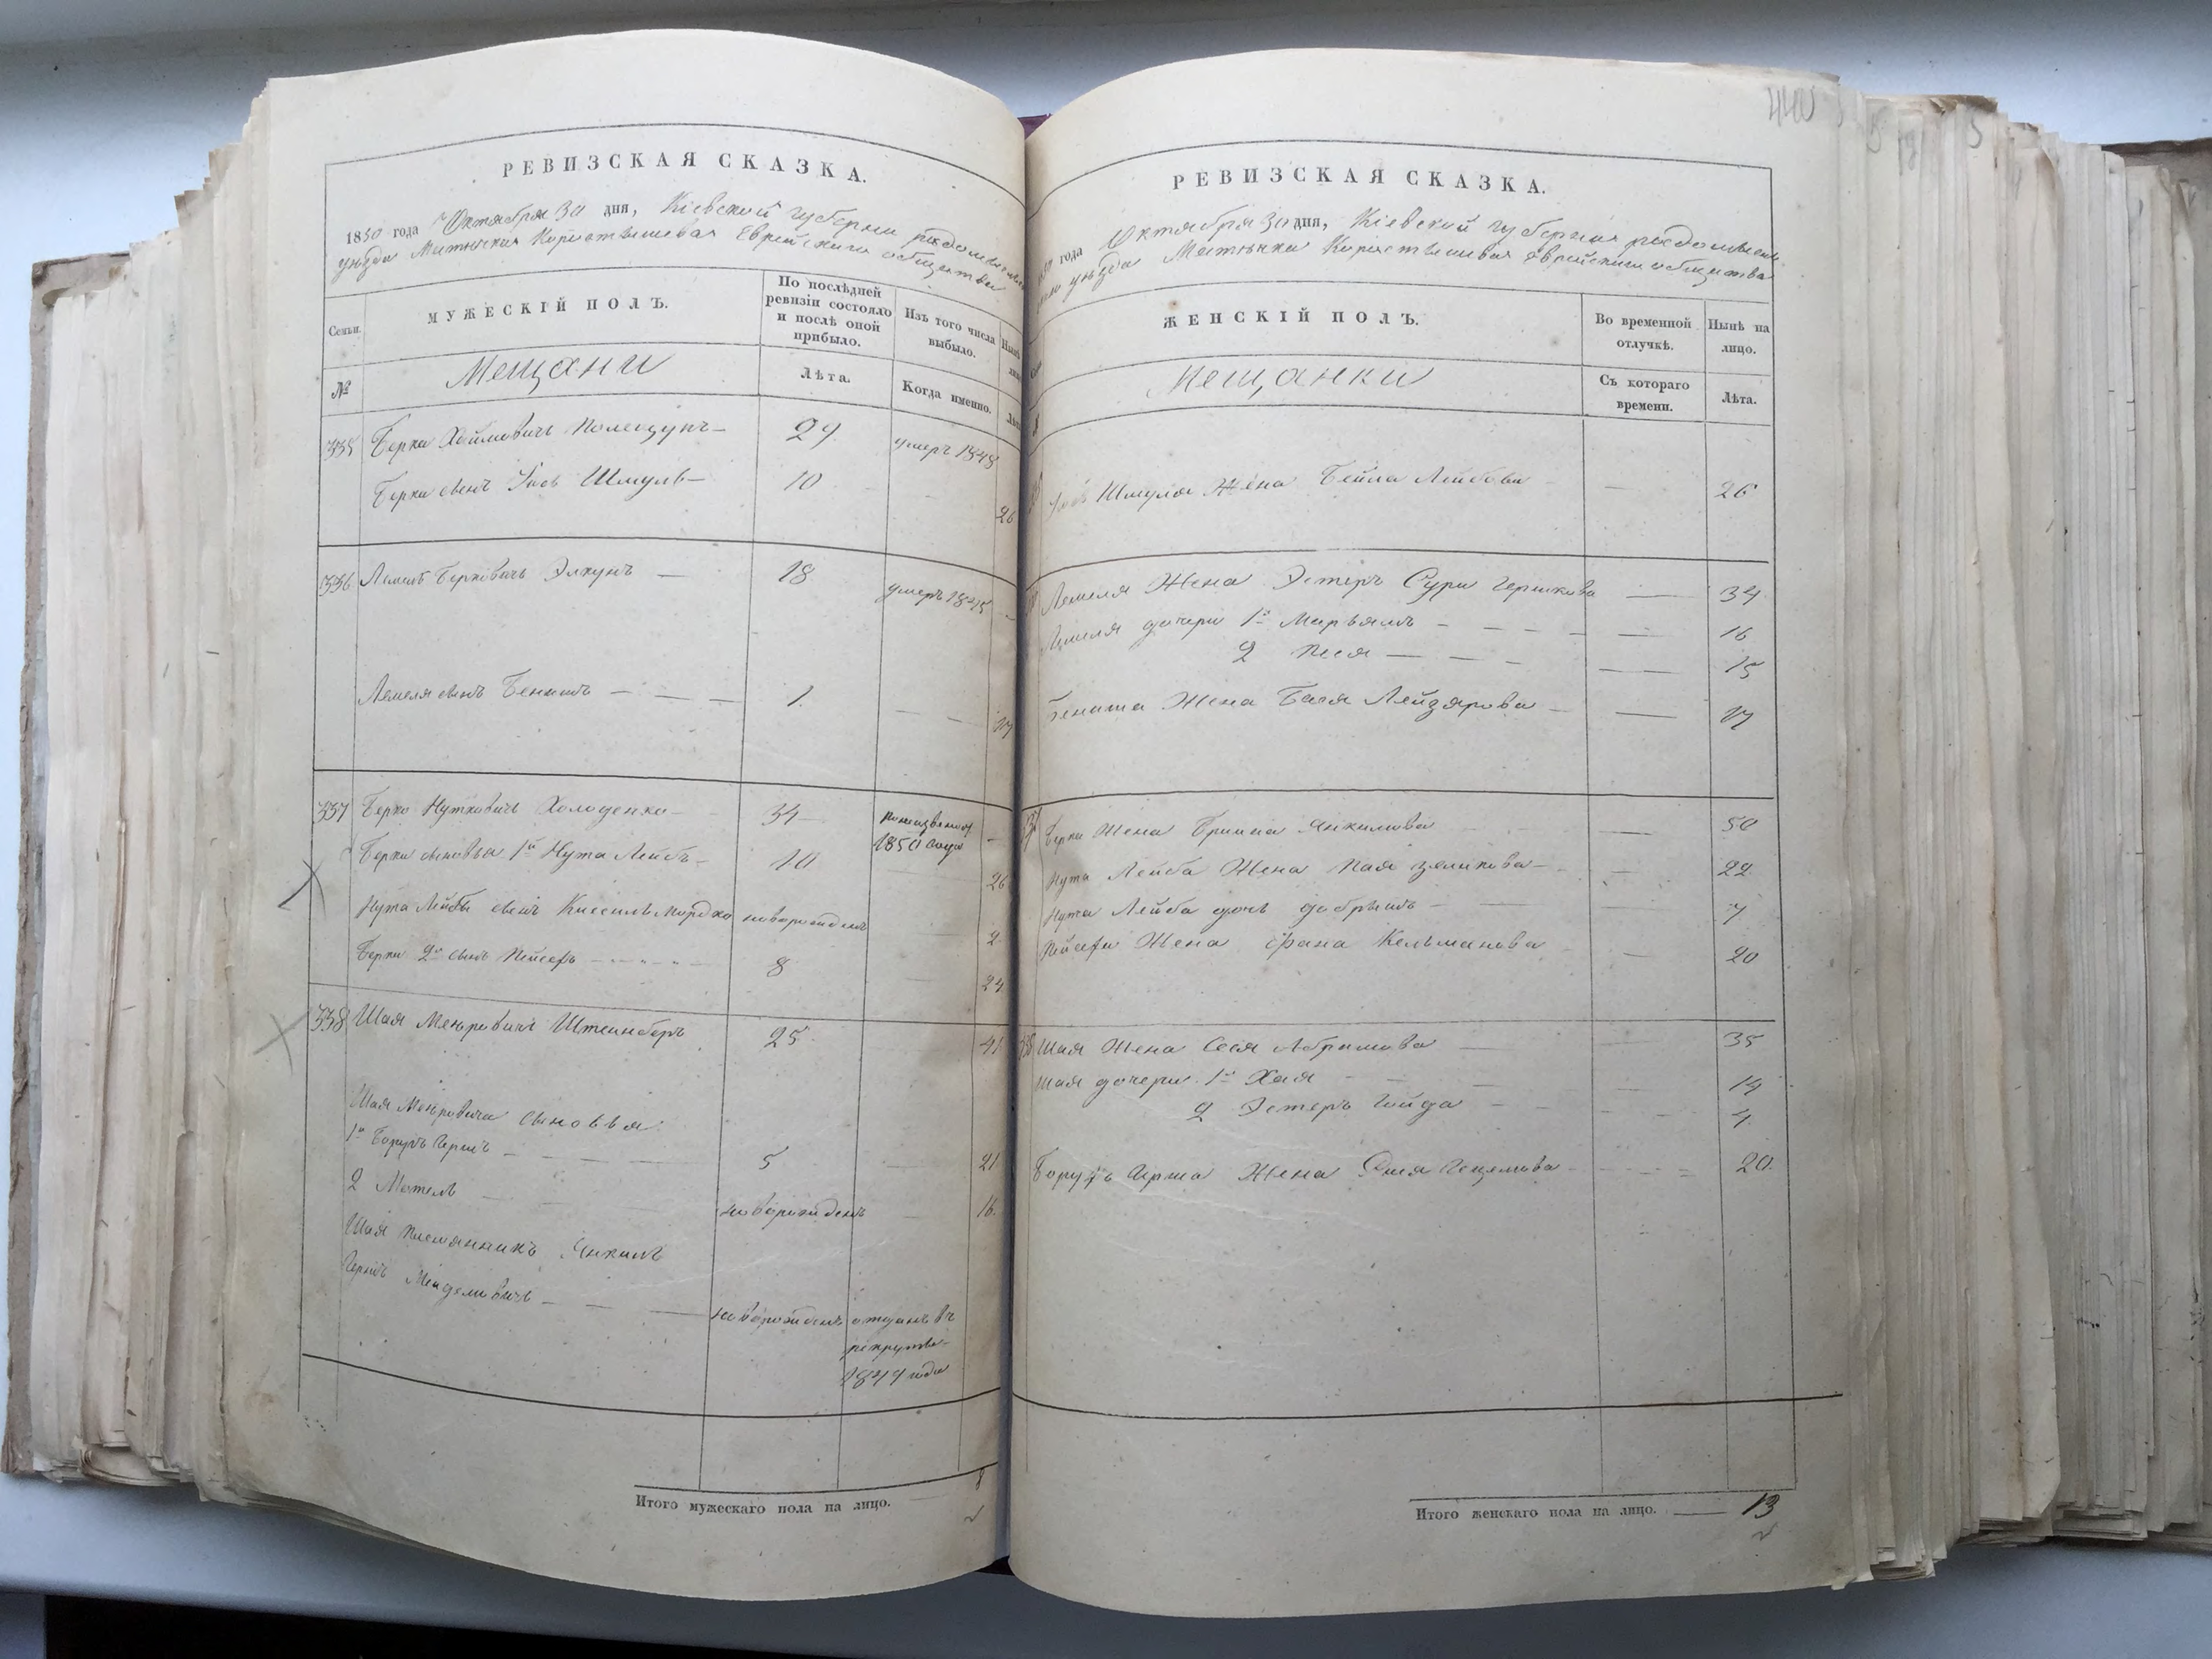 РЕВИЗСКАЯ СКАЗКА.
1850 года Октября 30 дня, Кіевской губерніи
уѣзда Мѣстечка Коростышева Еврейскаго общества
Семьи.
МУЖЕСКІЙ ПОЛЪ.
По послѣдней ревизіи состояло и послѣ оной прибыло.
Изъ того числа выбыло.
№
Мещани
Лѣта.
Когда именно.
335 Берко Хаймовичъ 29 умеръ 1848
Берки сынъ Иось Шмуль 10 26
336 Лемель Берковичъ Элкунъ 18 умеръ 1845
Лемеля сынъ Бенишъ 1. 17
337 Берко Нутковичъ Холоденко 34 1850 года
Берки сыновья 1й Нута Лейбъ 10 26
Нута Лейбы сынъ Кисиль Мордко новорожденъ 2
Берки 2й сынъ Пейсефъ 8 24
338 Шая Меюровичъ Штейнберъ 25 41
Шая Меюровича сыновья
1й Борухъ Гершъ 5 21
2 Мотель новорожденъ 16
Шая племянникъ Янкиль
Гершъ Менделиовичъ новорожденъ отданъ въ
рекруты
1849 года
Итого мужескаго пола на лицо. 8
440
РЕВИЗСКАЯ СКАЗКА.
1850 года Октября 30 дня, Кіевской губерніи
уѣзда Мѣстечка Коростышева Еврейскаго общества
ЖЕНСКІЙ ПОЛЪ.
Во временной отлучкѣ.
Нынѣ на лицо.
Мещанки
Съ котораго времени.
Лѣта.
Иось Шмуля Жена Бейла Лейбова 26
Лемеля Жена Эстеръ Сура Гершкова 34
Лемеля дочери 1я Марьямъ 16
2 Песя 15
Бениша Жена Бася Лейзярова 17
337 Берки Жена Брына Янкилова 50
Нута Лейба Жена Пая Зеликова 22
Нута Лейба дочь Добрышъ 7
Пейсефа Жена Франа Кельманова 20
338 Шая Жена Сося Абрамова 35
Шая дочери 1я Хая 14
2 Эстеръ Гойда 4
Борухъ Гирша Жена 20
Итого женскаго пола на лицо. 13